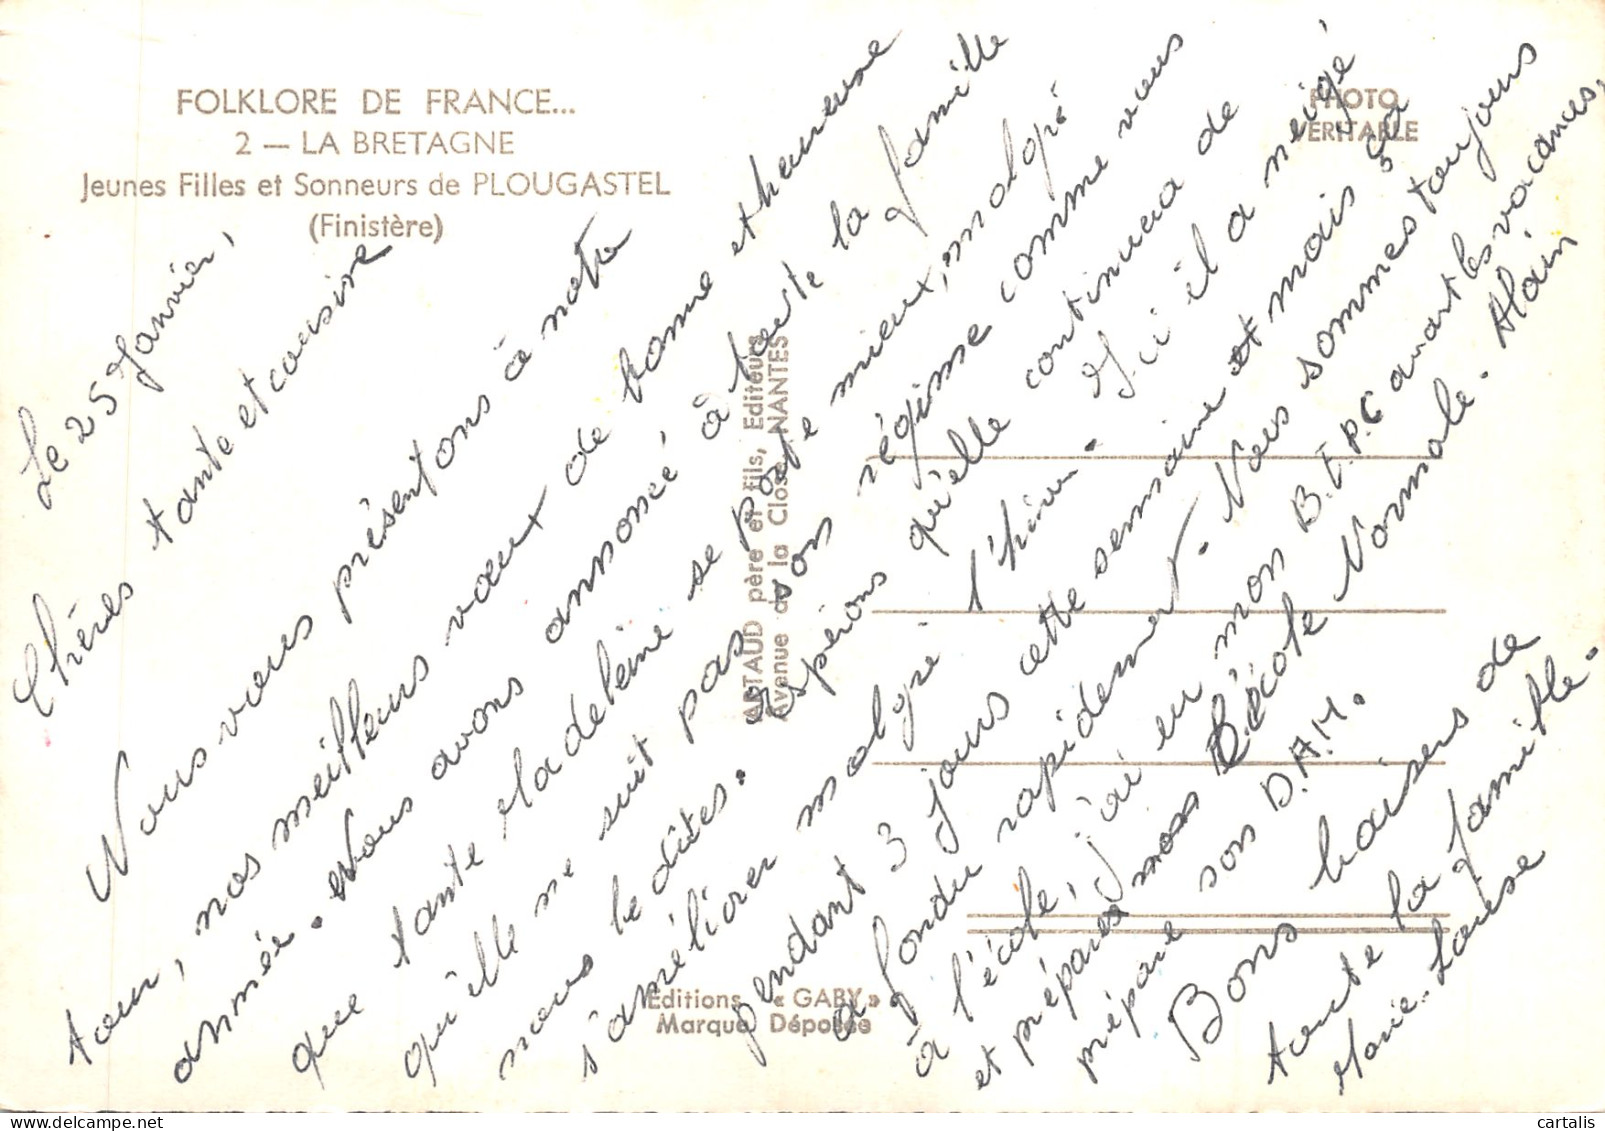 FOLKLORE DE FRANCE...
2 — LA BRETAGNE
Jeunes Filles et Sonneurs de PLOUGASTEL
(Finistère)
PHOTO
VERITABLE
ARTAUD père et fils, Editeurs
Avenue de la Close NANTES
Editions « GABY »
Marque Déposée
Le 25 Janvier,
Chères tante et cousine
Nous vous présentons à notre
tour, nos meilleurs vœux de bonne et heureuse
année. Nous avons annoncé à toute la famille
que tante Madeleine se porte mieux, malgré
qu'elle ne suit pas son régime comme vous
nous le dîtes. Espérons qu'elle continuera de
s'améliorer malgré l'hiver. Ici il a neigé
pendant 3 jours cette semaine et mais ça
a fondu rapidement. Nous sommes toujours
à l'école, j'ai eu mon B.E.P.C avant les vacances,
et prépare mon l'école Normale. Alain
prépare son D.A.M.
Bons baisers de
toute la famille.
Marie-Louise
cartalis